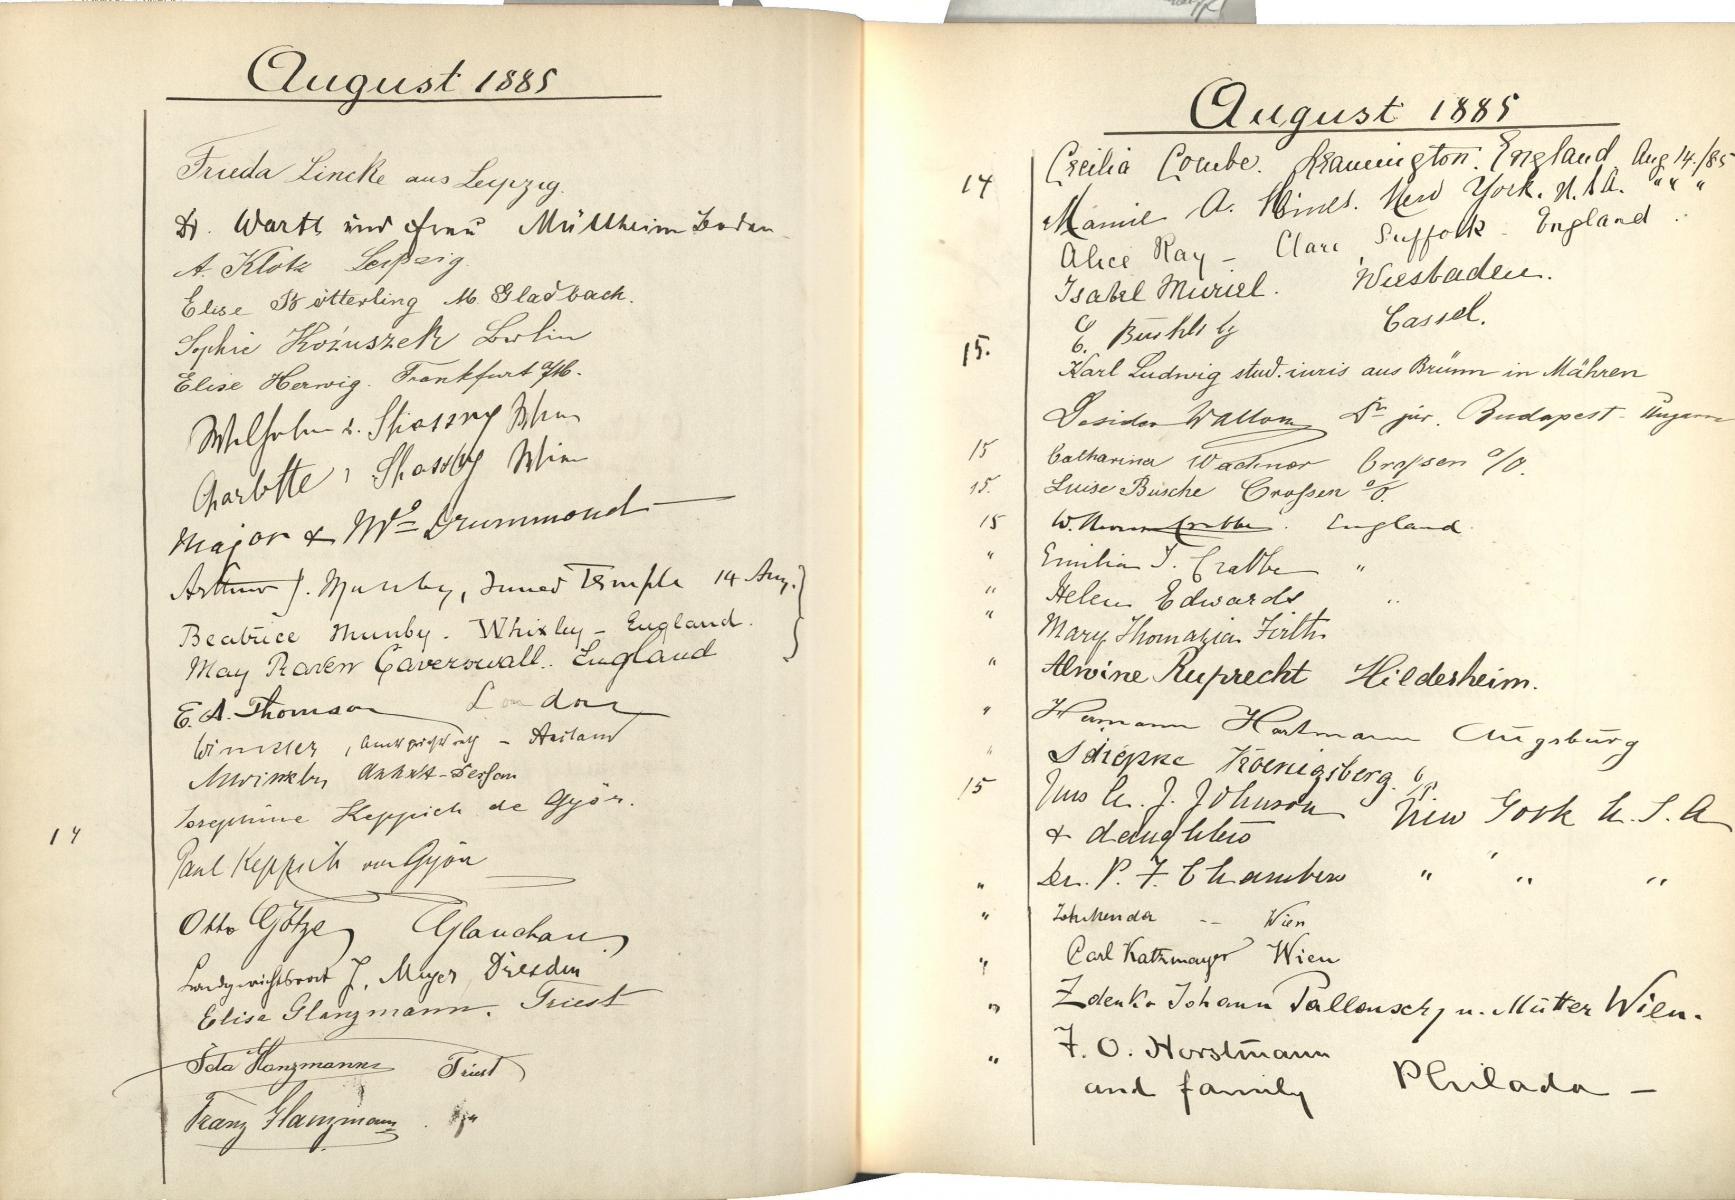 August 1885
Frieda Lincke aus Leipzig.
Dr. Warth und Frau Müllheim Baden
A. Klotz Leipzig.
Elise Bötterling M. Gladbach.
Sophie Kożuszek Berlin
Elise Herwig. Frankfurt a/M.
Wilhelm v. Wien
Charlotte v. Wien
Major & Mrs Drummond
Arthur J. Munby, Inner Temple 14 Aug.
Beatrice Munby. Whixley - England.
May Raven Caverswall. England
E. A. Thomson London
Winkler,
Anhalt-Dessau
Josephine Keppich de Győr.
14
Paul Keppich von Győr
Otto Götze Glauchau
Landgerichtsrat J. Meyer, Dresden
Elise Glanzmann. Triest
Ida Glanzmann Triest
Franz Glanzmann. "
August 1885
14 Cecilia Combe. Leamington. England Aug 14./85
Mamie A. Hines. New York. U.S.A. " " "
Alice Ray - Clare, Suffolk - England
Isabel Muriel. Wiesbaden.
15. Cassel.
Karl Ludwig stud. iuris aus Brünn in Mähren
Dr jur. Budapest - Ungarn
15 Catharina Wachner Crossen a/O.
15. Luise Busche Crossen a/O.
15 W. Crabbe. England.
" Emilia I. Crabbe "
" Helen Edwards "
" Mary Thomazia Firth
" Alwine Ruprecht Hildesheim.
" Hermann Hartmann Augsburg
" Koenigsberg i/P.
15 Mrs M. J. Johnson New York U. S. A
& daughters
" Dr. P. F. Chambers " " "
" Wien
" Carl Katzmayer Wien
" Zdenko Johann u. Mutter Wien.
" F. O. Horstmann
and family Philada -